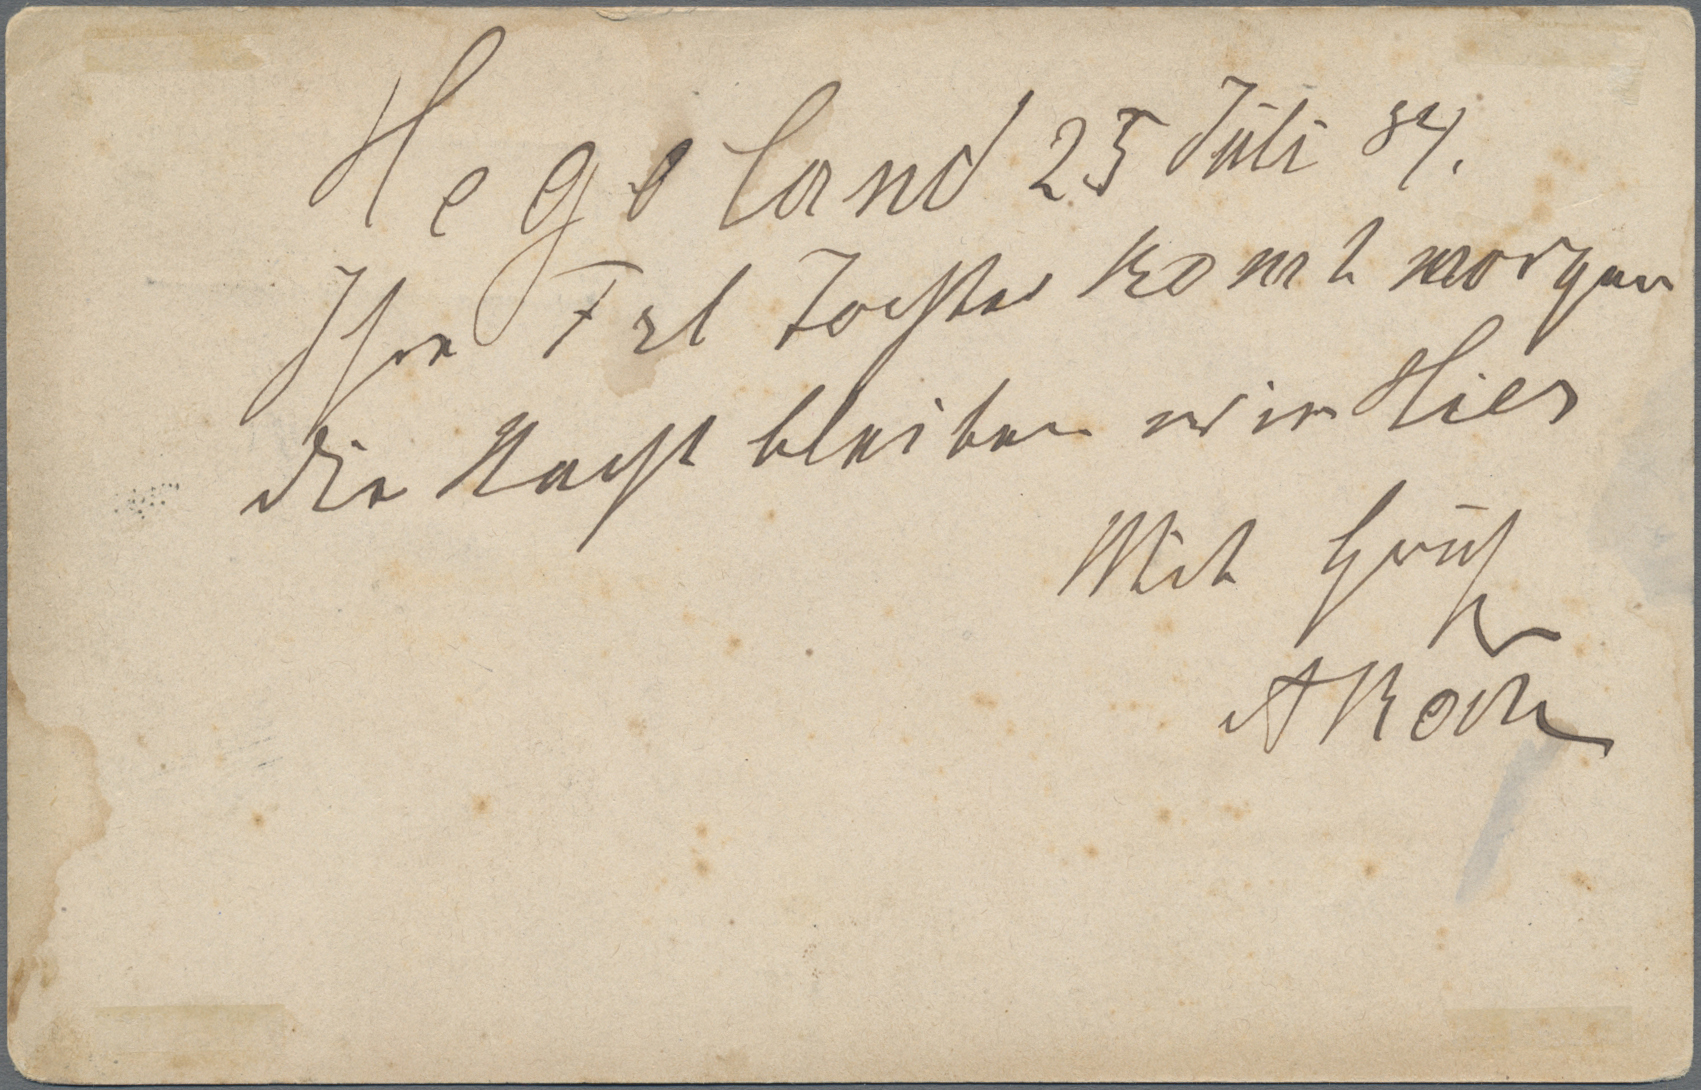 Hegoland 25 Juli 84.
Ihre Frl Tochter komt morgen
die Nacht bleiben wir Hier
Mit Gruß
A Koch